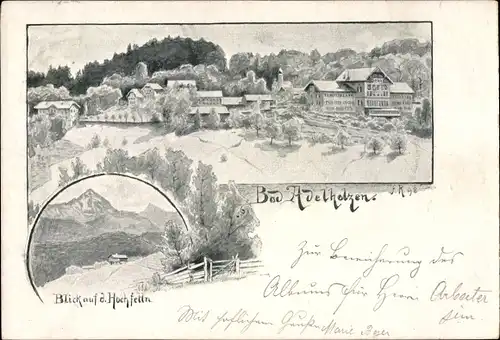 Bad Adelholzen.
J.R 98
Blick auf d. Hochfelln
Zur Bereicherung des
Albums für Herrn Arbeiter
sen.
Mit höflichem Gruße Marie